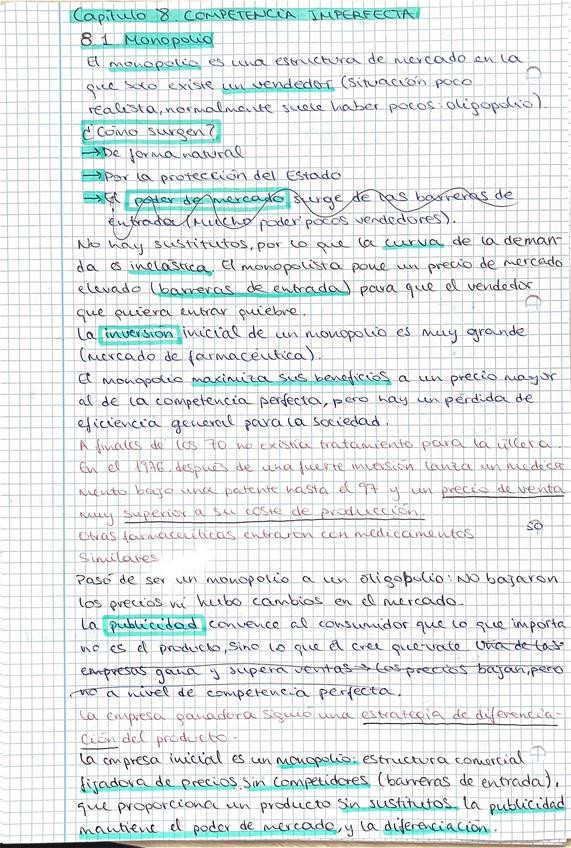 Capítulo 8. COMPETENCIA IMPERFECTA
8.1 Monopolio
El monopolio es una estructura de mercado en la
que solo existe un vendedor (situación poco
realista, normalmente suele haber pocos: oligopolio)
¿Cómo surgen?
→ De forma natural
→ Por la protección del Estado
→ El poder de mercado surge de las barreras de
entrada (mucho poder: pocos vendedores).
No hay sustitutos, por lo que la curva de la deman-
da es inelástica. El monopolista pone un precio de mercado
elevado (barreras de entrada) para que el vendedor
que quiera entrar quiebre.
La inversión inicial de un monopolio es muy grande
(mercado de farmacéutica).
El monopolio maximiza sus beneficios a un precio mayor
al de la competencia perfecta, pero hay un pérdida de
eficiencia general para la sociedad.
A finales de los 70 no existía tratamiento para la úlcera.
En el 1976, después de una fuerte inversión lanza un medica
mento bajo una patente hasta el 97 y un precio de venta
muy superior a su coste de producción.
Otras farmaceúticas entraron con medicamentos
50
similares
Pasó de ser un monopolio a un oligopolio: NO bajaron
los precios ni hubo cambios en el mercado.
La publicidad convence al consumidor que lo que importa
no es el producto, sino lo que él cree que vale Una de las
empresas gana y supera ventas → Los precios bajan, pero
no a nivel de competencia perfecta.
La empresa ganadora siguió una estrategia de diferencia-
ción del producto.
La empresa inicial es un monopolio: estructura comercial
fijadora de precios, sin competidores (barreras de entrada),
que proporciona un producto sin sustitutos. La publicidad
mantiene el poder de mercado, y la diferenciación.